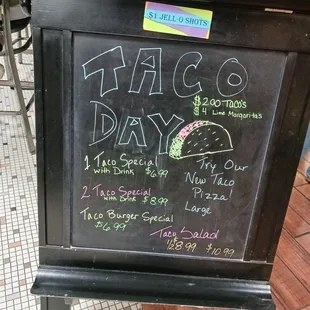 $1 JELL-O SHOTS
TACO
DAY
$2.00 TACO'S
$4 Lime Margarita's
1 Taco Special
with Drink $6.99
2 Taco Special
with Drink $8.99
Taco Burger Special
$6.99
Try Our
New Taco
Pizza
Large
Taco Salad
1/2 8.99 $10.99